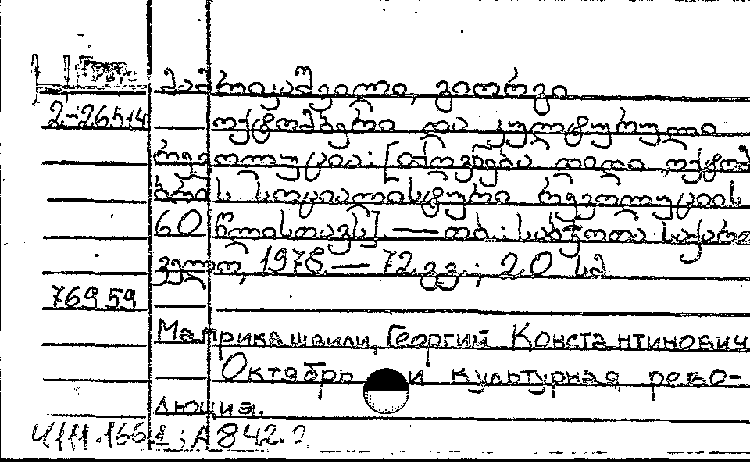 მამრიკაშვილი, გიორგი
2-26514 ოქტომბერი და კულტურული
რევოლუცია: [ეძღვნება დიდი ოქტომ
ბრის სოციალისტური რევოლუციის
60 წლისთავს]. — თბ.: საბჭოთა საქართ
ველო, 1978. — 72 გვ.; 20 სმ
76959
Мамрикашвили, Георгий Константинович
Октябрь и культурная рево-
люция.